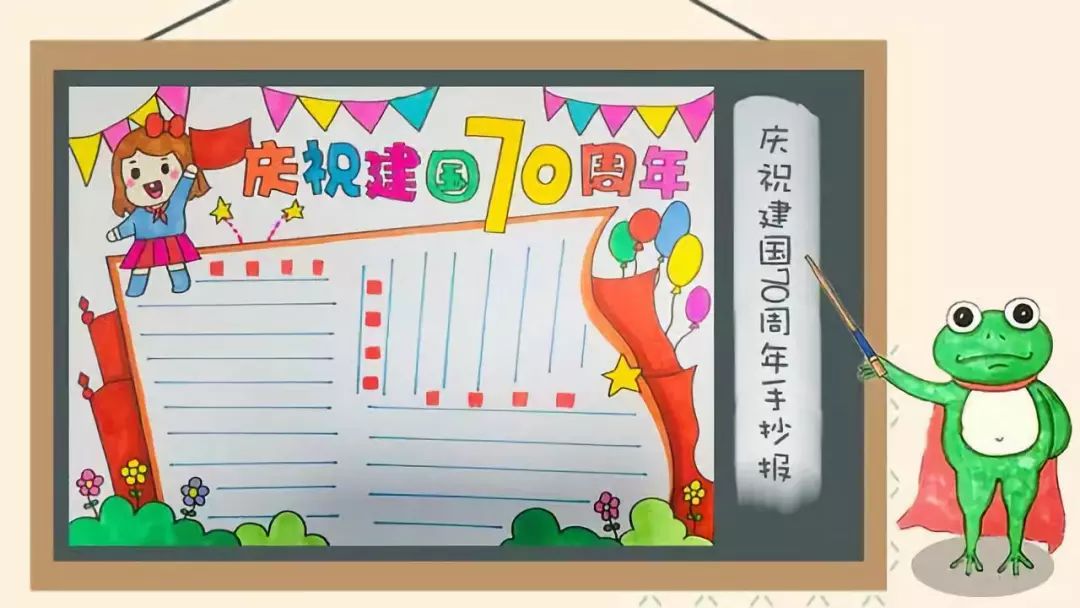 庆祝建国70周年
庆祝建国70周年手抄报